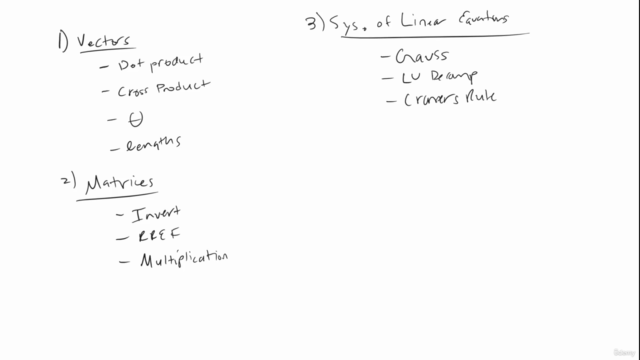 1) Vectors
- Dot product
- Cross Product
- θ
- lengths
2) Matrices
- Invert
- RREF
- Multiplication
3) Sys. of Linear Equations
- Gauss
- LU Decomp
- Cramers Rule
Udemy